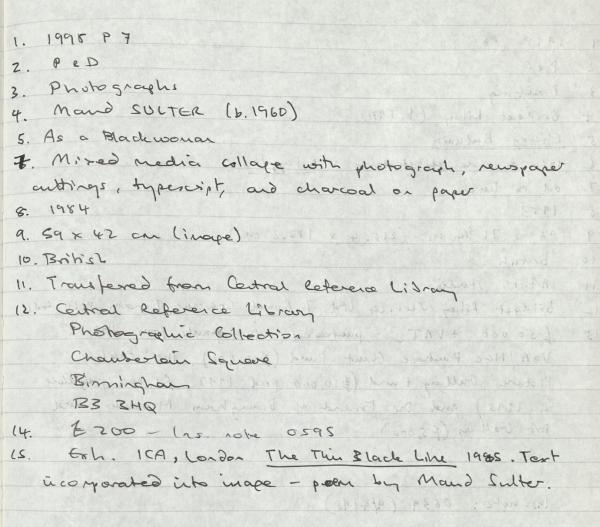 1. 1995 P 7
2. P & D
3. Photographs
4. Maud SULTER (b.1960)
5. As a Blackwoman
7. Mixed media collage with photograph, newspaper
cuttings, typescript, and charcoal on paper
8. 1984
9. 59 x 42 cm (image)
10. British
11. Transferred from Central Reference Library
12. Central Reference Library
Photographic Collection
Chamberlain Square
Birmingham
B3 3HQ
14. £200 - Ins. note 0595
15. Exh. ICA, London The Thin Black Line 1985. Text
incorporated into image - poem by Maud Sulter.